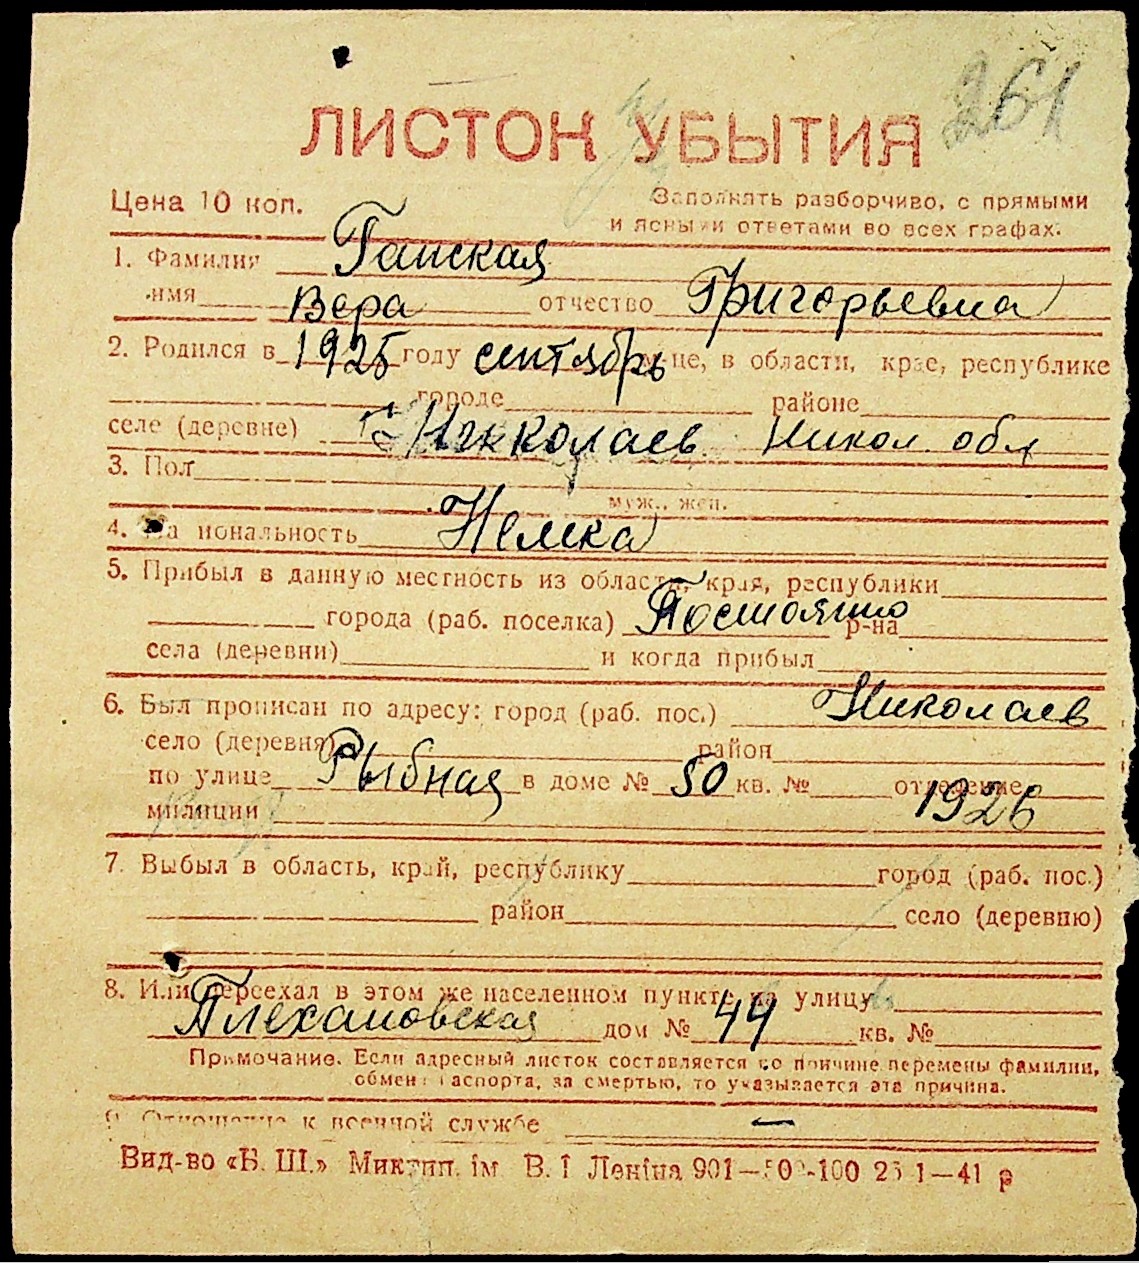 261
ЛИСТОК УБЫТИЯ
Цена 10 коп.
Заполнять разборчиво, с прямыми
и ясными ответами во всех графах.
1. Фамилия Ганская
имя Вера отчество Григорьевна
2. Родился в 1925 году сентябрь м-це, в области, крае, республике
городе районе
селе (деревне) г. Николаев. Никол. обл
3. Пол
муж., жен.
4. На иональность Немка
5. Прибыл в данную местность из области, края, республики
города (раб. поселка) Постоянно р-на
села (деревни) и когда прибыл
6. Был прописан по адресу: город (раб. пос.) Николаев
село (деревня) район
по улице Рыбная в доме № 50 кв. № отделение
милиции 1926
7. Выбыл в область, край, республику город (раб. пос.)
район село (деревню)
8. Или переехал в этом же населенном пункте на улицу
Плехановская дом № 44 кв. №
Примечание. Если адресный листок составляется по причине перемены фамилии,
обмена паспорта, за смертью, то указывается эта причина.
9. Отношение к военной службе —
Вид-во «Б. Ш.» Мик тип. ім В. І Леніна 901—50 -100 25 1—41 р